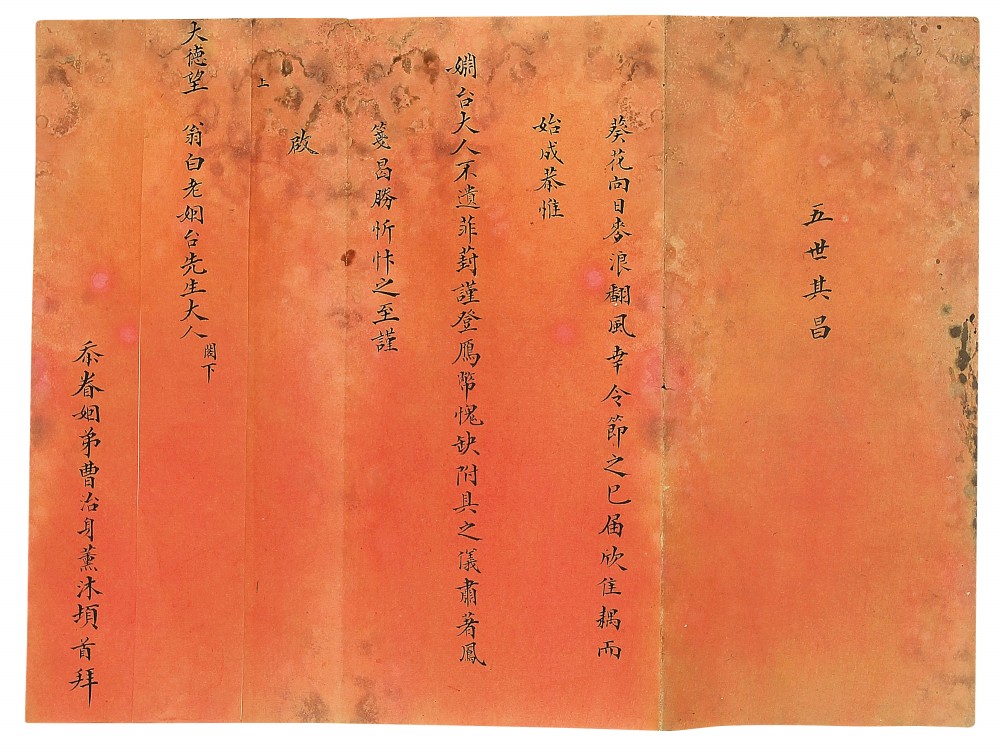 五世其昌
葵花向日麥浪翻風幸令節之已届欣佳耦而
始成恭惟
嫻台大人不遺葑菲謹登鴈幣愧缺附具之儀肅著鳳
箋曷勝忻忭之至謹
啟
上
大德望翁白老姻台先生大人閣下
忝眷姻弟曹治身薰沐頓首拜